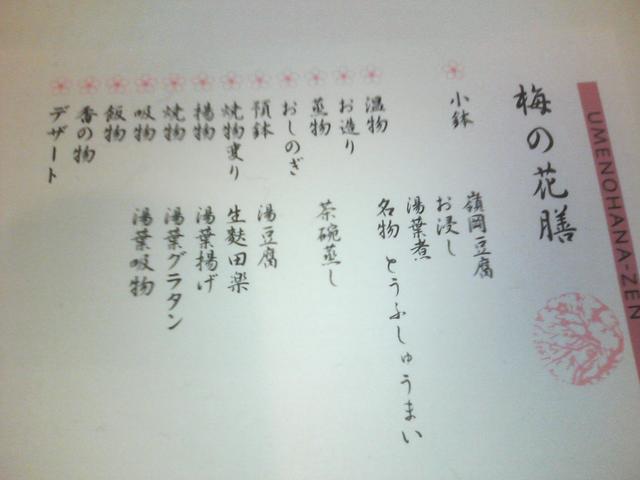 UMENOHANA-ZEN
梅の花膳
小鉢 嶺岡豆腐
お浸し
湯葉煮
温物 名物 とうふしゅうまい
お造り
蒸物 茶碗蒸し
おしのぎ
預鉢 湯豆腐
焼物変り 生麩田楽
揚物 湯葉揚げ
焼物 湯葉グラタン
吸物 湯葉吸物
飯物
香の物
デザート